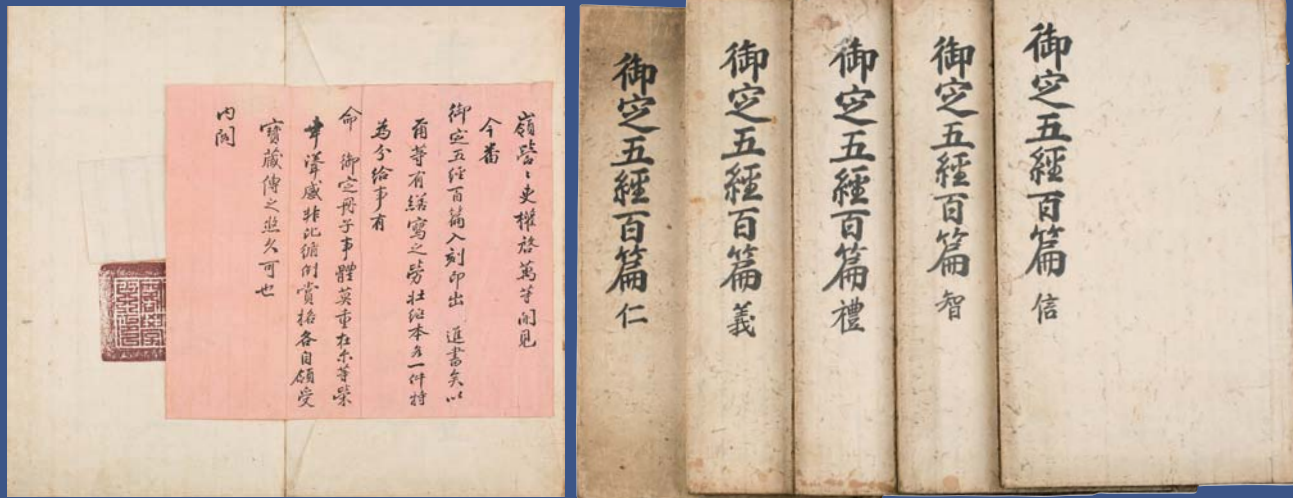 嶺營〻吏權啓萬等開見
今番
御定五經百篇入刻印出 進書矣以
甫等有繕寫之勞壯紙本各一件特
為分給事有
命 御定冊子事體莫重在尒等榮
幸 感非比循例賞格各自領受
寶藏傳之悠久可也
內閣
御定五經百篇 仁
御定五經百篇 義
御定五經百篇 禮
御定五經百篇 智
御定五經百篇 信